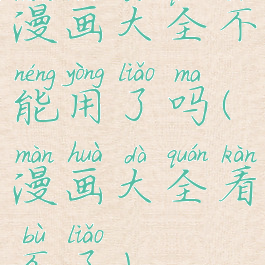 漫画大全不
néng yòng liǎo ma
能用了吗(
màn huà dà quán kàn
漫画大全看
bù liǎo
不了)